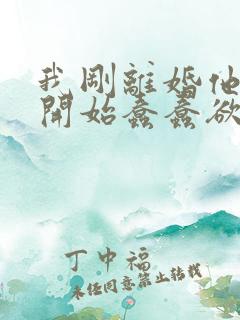 我剛離婚他
開始蠢蠢欲
丁中福
未經同意禁止轉載